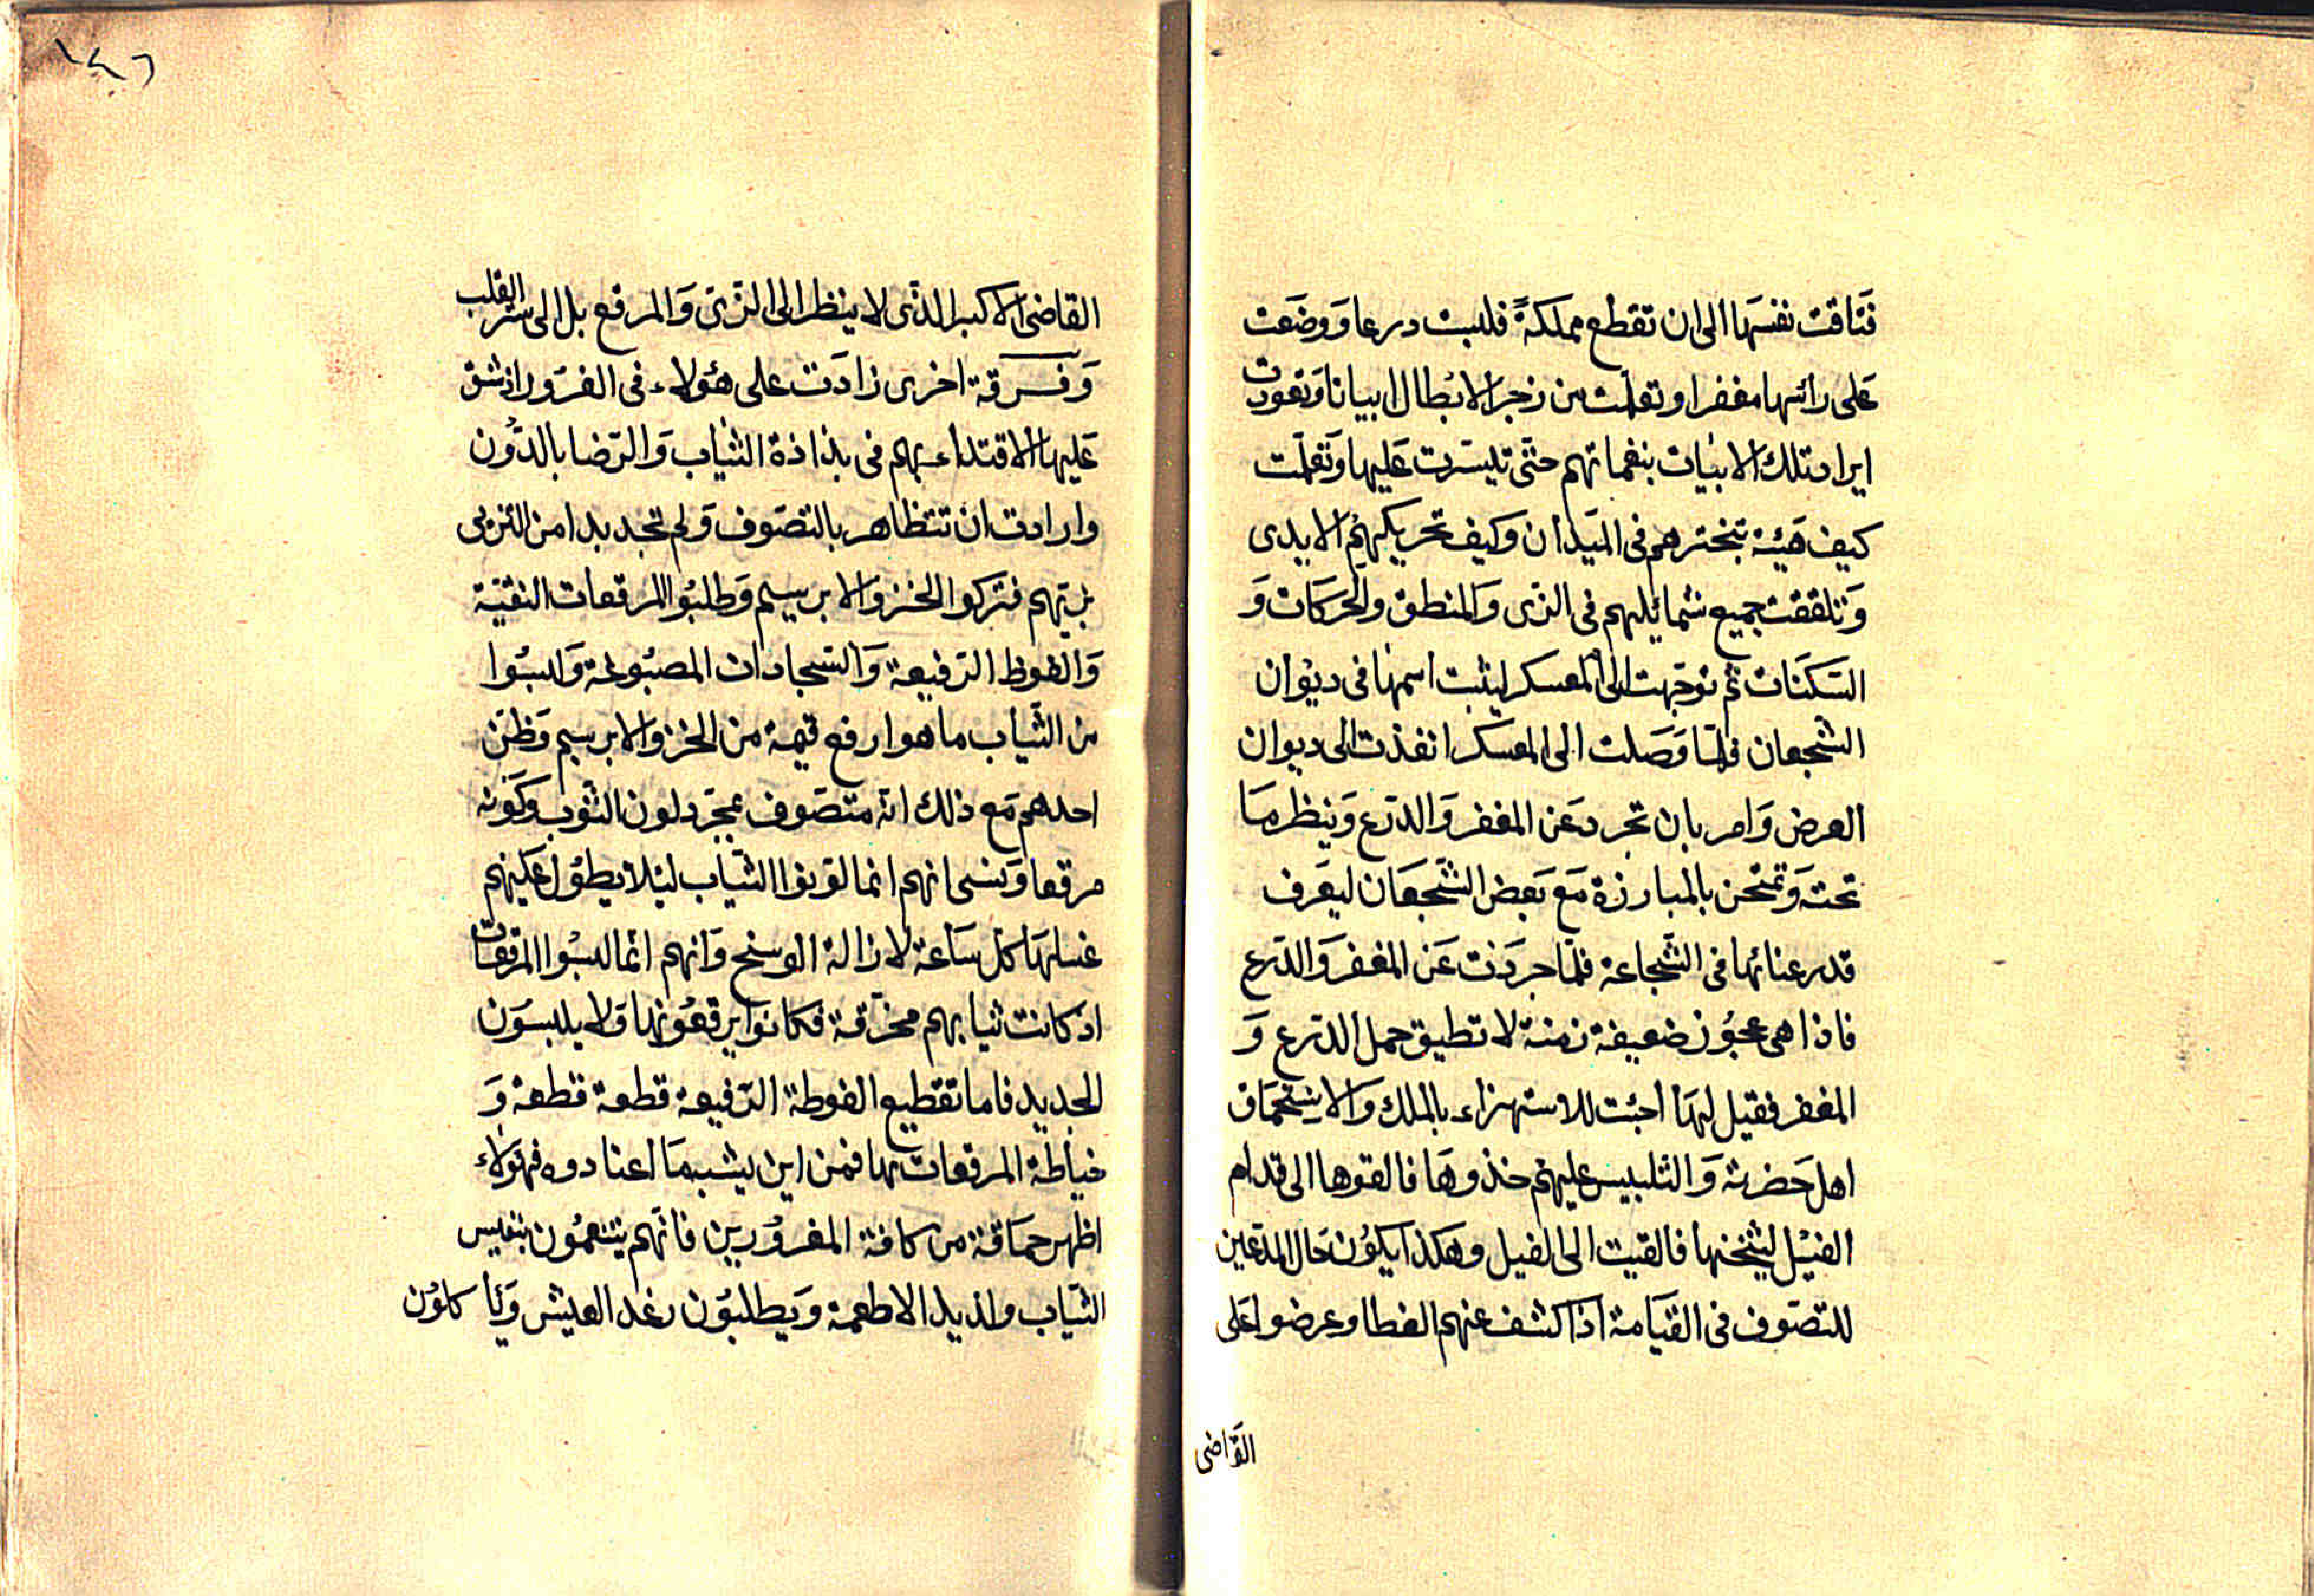 فتاقت نفسها الى ان تقطع مملكةً فلبست درعا ووضعت
على رأسها مغفرا وتعلمت من زجر الابطال ابياتا وتعودت
ايراد تلك الابيات بنغماتهم حتى تيسرت عليها وتعلمت
كيف هيئة تبخترهم فى الميدان وكيف تحريكهم الايدى
وتلقفت جميع شمائلهم فى الزى والمنطق والحركات و
السكنات ثم توجهت الى المعسكر ليثبت اسمها فى ديوان
الشجعان فلما وصلت الى المعسكر انفذت الى ديوان
العرض وامر بان تجرد عن المغفر والدرع وينظر ما
تحته وتمتحن بالمبارزة مع بعض الشجعان ليعرف
قدر عنائها فى الشجاعة فلما جردت عن المغفر والدرع
فاذا هى عجوز ضعيفة زمنة لا تطيق حمل الدرع و
المغفر فقيل لها أجئت للاستهزاء بالملك والاستحماق
اهل حضرته والتلبيس عليهم خذوها فالقوها الى قدام
الفيل ليثخنها فالقيت الى الفيل وهكذا يكون حال المدعين
للتصوف فى القيامة اذا كشف عنهم الغطا وعرضوا على
القاضى
١٤٦
القاضى الاكبر الذى لا ينظر الى الزى والمرقع بل الى سر القلب
وفرقة اخرى زادت على هؤلاء فى الغرور اذ شق
عليها الاقتداء بهم فى بذاذة الثياب والرضا بالدون
وارادت ان تتظاهر بالتصوف ولم تجد بدا من التزيى
بزيهم فتركوا الخز والابريسم وطلبوا المرقعات النقية
والفوط الرفيعة والسجادات المصبوغة ولبسوا
من الثياب ما هو ارفع قيمة من الخز والابريسم وظن
احدهم مع ذلك انه متصوف بمجرد لون الثوب وكونه
مرقعا ونسى انهم انما لونوا الثياب ليلا يطول عليهم
غسلها كل ساعة لازالة الوسخ وانهم انما لبسوا المرقعات
اذ كانت ثيابهم مخرقة فكانوا يرقعونها ولا يلبسون
الجديد فاما تقطيع الفوطة الرفيعة قطعة قطعة و
خياطة المرقعات بها فمن اين يشبه ما اعتادوه فهؤلاء
اظهر حماقة من كافة المغرورين فانهم يتنعمون بنفيس
الثياب ولذيذ الاطعمة ويطلبون رغد العيش ويأكلون